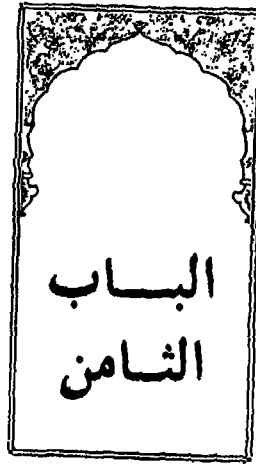 البـــاب
الثــامن